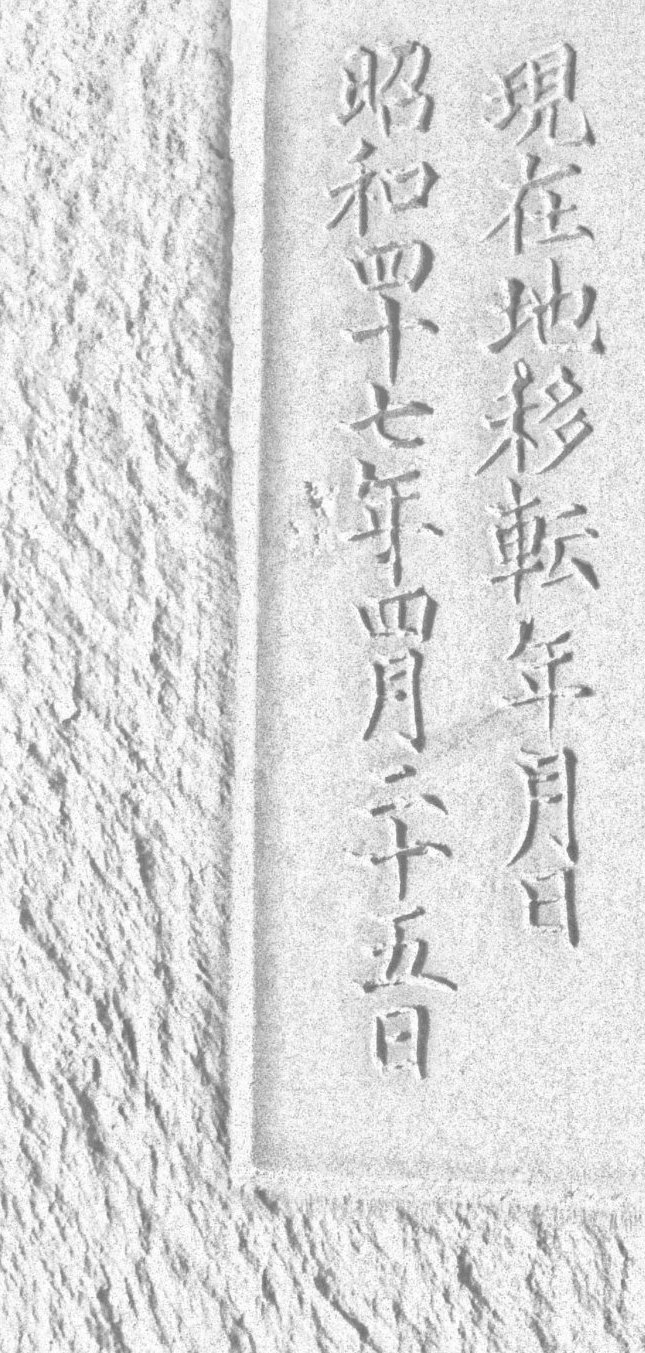 現在地移転年月日
昭和四十七年四月二十五日